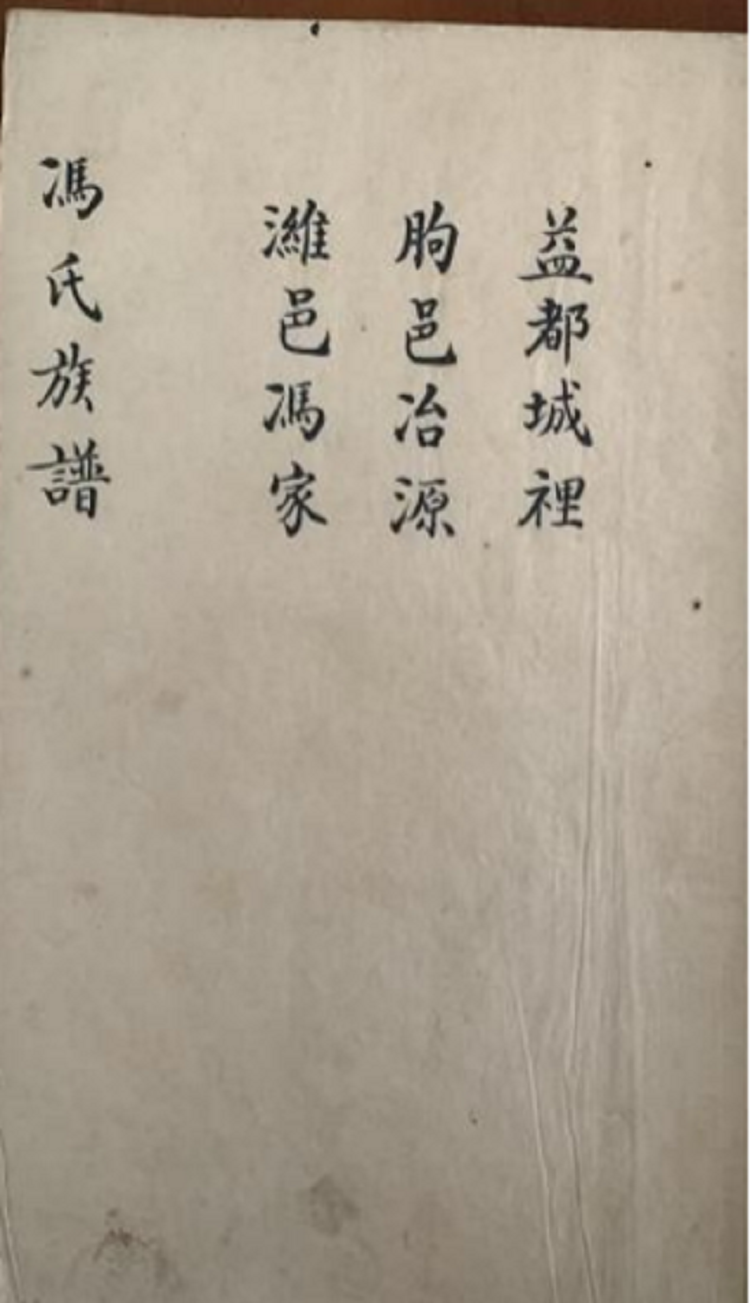 益都城裡
朐邑冶源
濰邑馮家
馮氏族譜